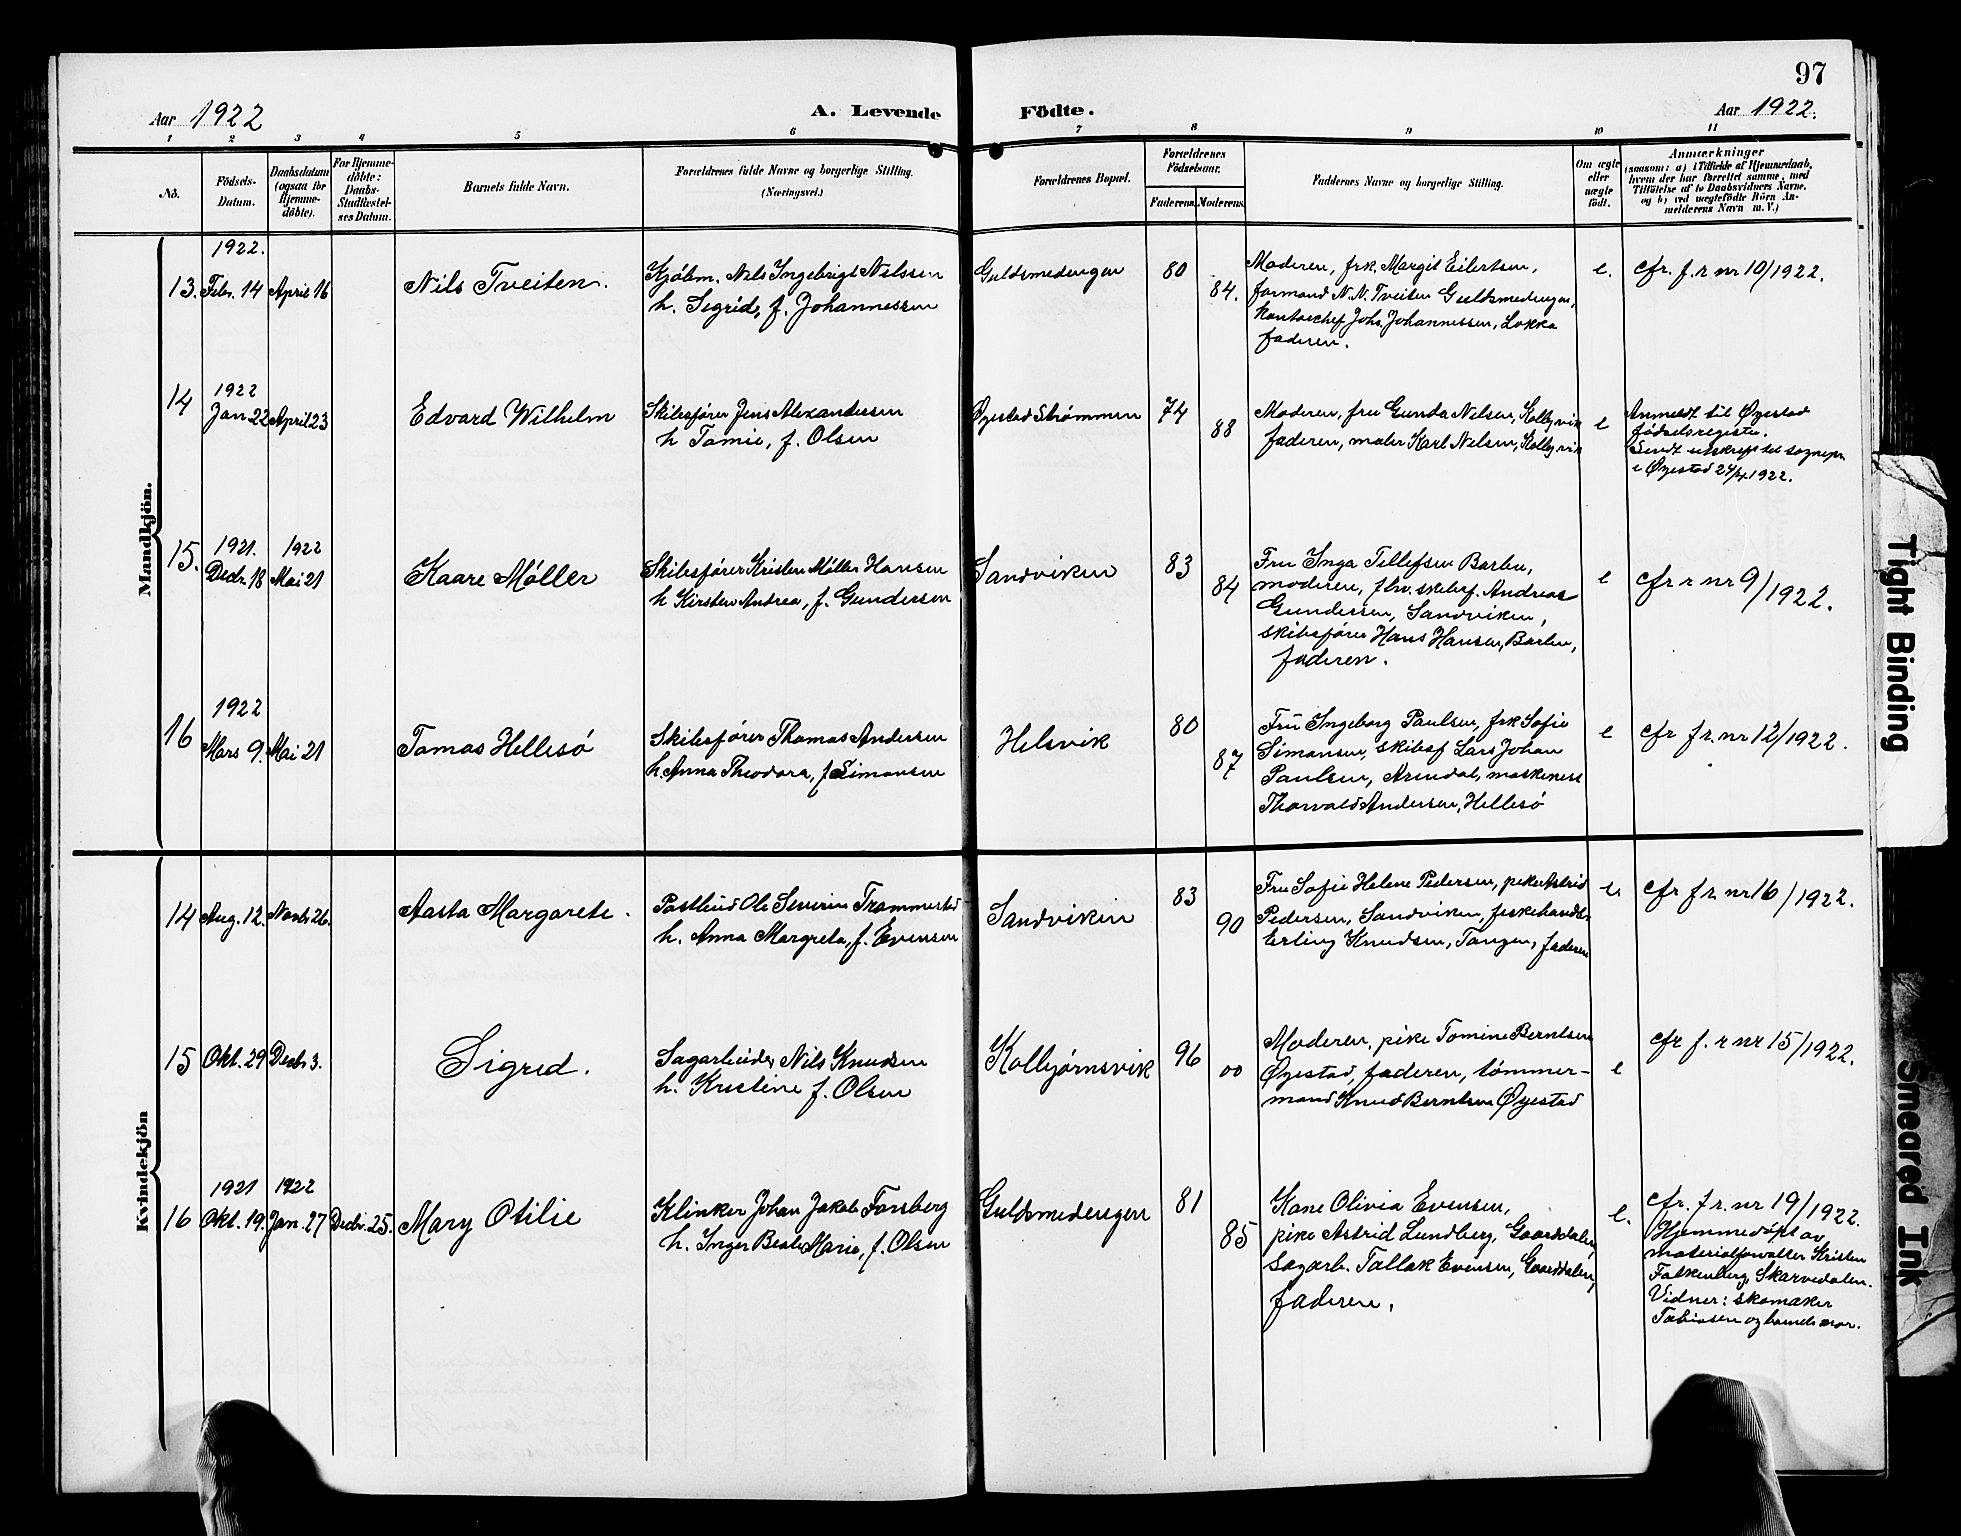 97
Aar 1922
A. Levende
Födte.
Aar 1922.
1 2 3 4 5 6 7 8 9 10 11
No.
Födsels-
Datum.
Daabsdatum
(ogsaa for
Hjemme-
döbte).
For Hjemme-
döbte:
Daabs-
Stadfæstel-
ses Datum.
Barnets fulde Navn.
Forældrenes fulde Navne og borgerlige Stilling.
(Næringsvei.)
Forældrenes Bopæl.
Forældrenes
Födselsaar.
Faderens. Moderens.
Faddernes Navne og borgerlige Stilling.
Om ægte
eller
uægte
født.
Anmærkninger
(saasom: a) i Tilfælde af Hjemmedaab,
hvem der har forrettet samme, med
Tilföielse af to Daabsvidners Navne,
og b) ved uægtefödte Börn An-
melderens Navn m. V.)
Mandkjön.
1922.
13. Febr. 14 April 16
Nils Tveiten.
Kjøbm. Nils Ingebrigt Nilssen
h. Sigrid, f. Johannessen
Guldsmedengen
80
84.
Moderen, frk. Margit Eilertsen,
formand N. N. Tveiten Guldsmedengen,
kontorchef Johs. Johannessen, Lokka
faderen.
e.
cfr. f. r nr 10/1922.
1922
14 Jan 22 April 23
Edvard Wilhelm
Skibsfører Jens Alexandersen
h Tomie, f. Olsen
Øyestad Strømmen
74
88
Moderen, fru Gunda Nilsen, Kolbj.vik
faderen, maler Karl Nelsen, Kolbj.vik
e
Anmeldt til Øyestad
fødselsregister.
Sendt utskrift til sognepr.
i Øyestad 24/4 1922.
1921. 1922
15. Decbr. 18 Mai 21
Kaare Møller
Skibsfører Kristen Møller Hansen
h Kirsten Andrea, f. Gundersen
Sandviken
83
84
Fru Inga Tellefsen Barbu,
moderen, fhv. skibsf. Andreas
Gundersen, Sandviken,
skibsfører Hans Hansen, Barbu,
faderen.
e
cfr r nr 9/1922.
1922
16 Mars 9. Mai 21
Tomas Hellesö
Skibsfører Thomas Andersen
h. Anna Theodora, f. Simonsen
Helsvik
80
87
Fru Ingeborg Paulsen, frk Sofie
Simonsen, skibsf Lars Johan
Paulsen, Arendal, maskinist
Thorvald Andersen, Hellesö
e
cfr f r. nr 12/1922.
Kvindekjön
14 Aug. 12. Novbr 26.
Aasta Margarete.
Postbud Ole Severin Trommestad
h. Anna Margreta, f. Evensen
Sandviken
83
90
Fru Sofie Helene Pedersen, pike Astrid
Pedersen, Sandviken, fiskehandler
Erling Knudsen, Tangen, faderen
e.
cfr f r. nr 16/1922.
15 Okt. 29 Decbr 3.
Sigrid.
Sagarbeider Nils Knudsen
h. Kristine f. Olsen
Kolbjørnsvik
96
00
Moderen, pike Tomine Berntsen
Øyestad, faderen, tømmer-
mand Knud Berntsen Øyestad
e
cfr f. r nr 15/1922.
1921 1922
16 Okt. 19. Jan. 27 Decbr. 25.
Mary Otilie
Klinker Johan Jakob Forsberg
h. Inger Beate Marie, f. Olsen
Guldsmedengen
81
85
Kone Olivia Evensen,
pike Astrid Lundberg, Gaarddalen,
Sagarb. Tallak Evensen, Gaarddalen,
faderen.
e.
cfr. f r. nr 19/1922.
Hjemmedøpt av
materialforvalter Kristen
Falkenberg, Skarvedalen.
Vidner: skomaker
Tobiasen og barnets mor.
Tight Binding
Smeared Ink